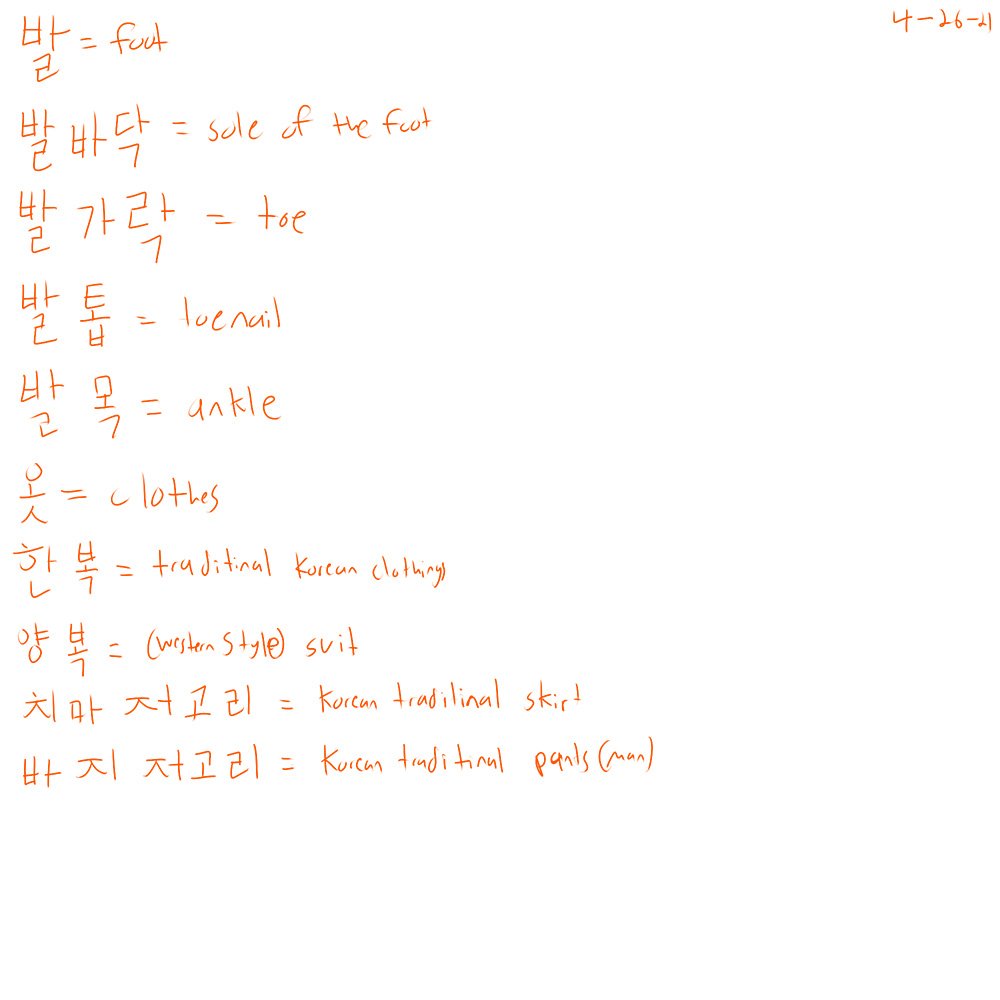 4-26-21
발 = foot
발바닥 = sole of the foot
발가락 = toe
발톱 = toenail
발목 = ankle
옷 = clothes
한복 = traditinal Korean clothing
양복 = (western style) suit
치마 저고리 = Korean traditinal skirt
바지 저고리 = Korean traditinal pants (man)